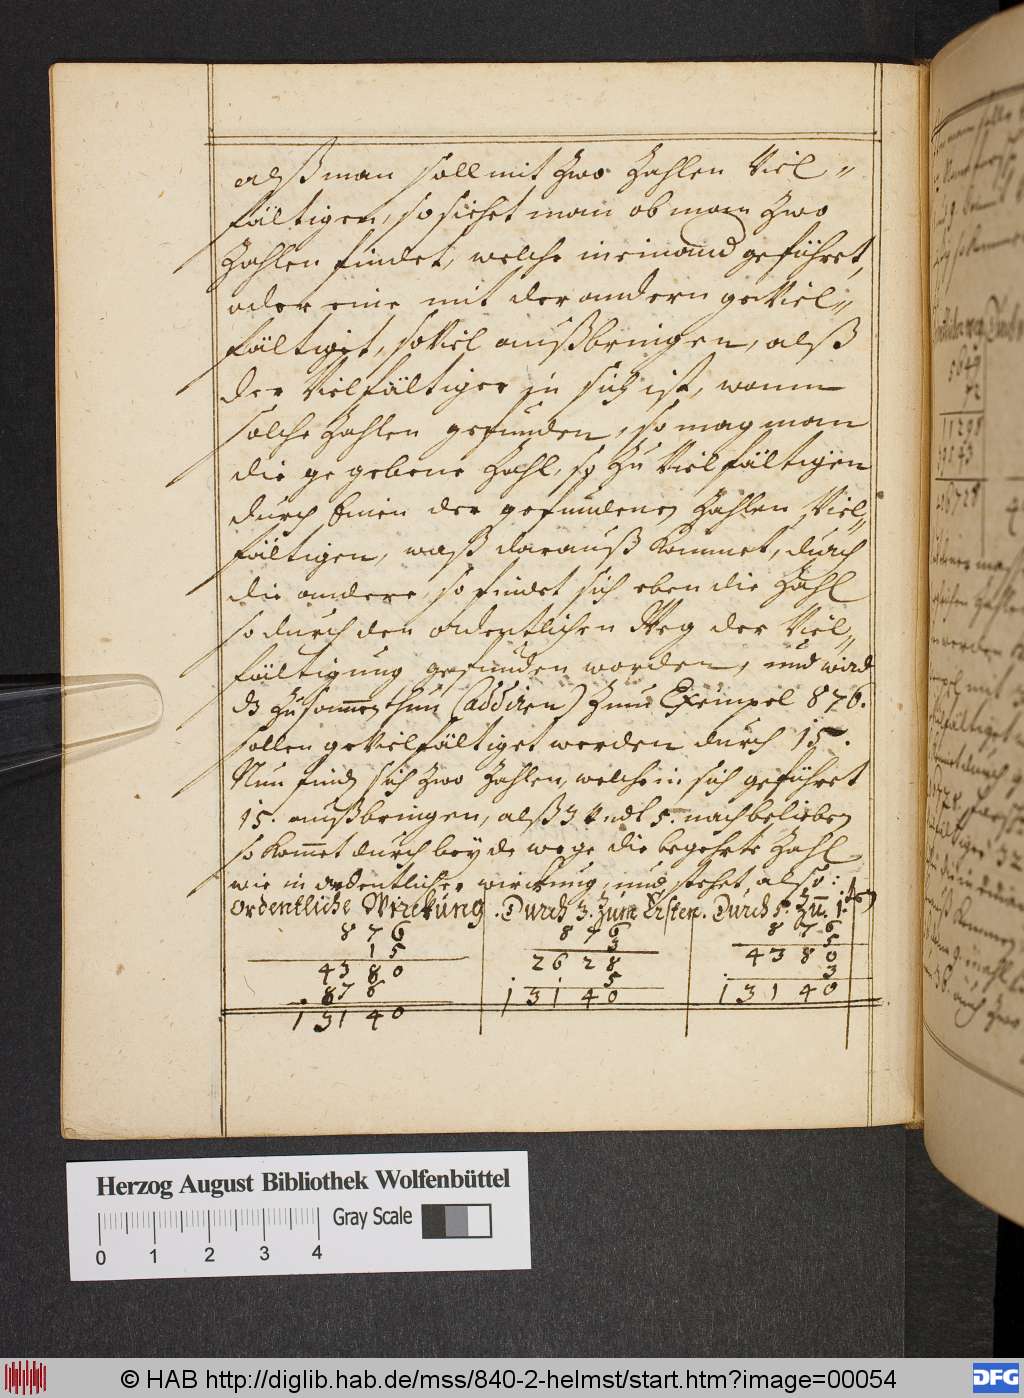 alß man soll mit Zwo Zahlen Viel„
fältigen, so siehet man ob man Zwo
Zahlen findet, welche in einand geführet,
oder eine mit der andern geViel„
fältigt, soViel außbringen, alß
der Vielfältiger in sich ist, wann
solche Zahlen gefunden, so mag man
die gegebene Zahl, so Zu Vielfältigen
durch Einen der gefundenen Zahlen Viel„
fältigen, waß darauß kommet, durch
die andere, so findet sich eben die Zahl
so durch den ordentlichen Weg der Viel„
fältigung gefunden worden, und wird
Zusammen thun (addiren) Zum Exempel 876.
sollen geVielfältiget werden durch 15.
Nun find sich Zwo Zahlen, welche in sich geführet
15. außbringen, alß 3 Undt 5. nach belieben
so kommet durch beyde wege die begehrte Zahl
wie in ordentlicher wirckung, und stehet also:
Ordentliche Wirckung. Durch 3. Zum Ersten. Durch 5. Zum 1.ten
876 876 876
15 3 5
4380 2628 4380
876 5 3
13140 13140 13140
5649
72
11298
Herzog August Bibliothek Wolfenbüttel
Gray Scale
0 1 2 3 4
© HAB http://diglib.hab.de/mss/840-2-helmst/start.htm?image=00054
DFG